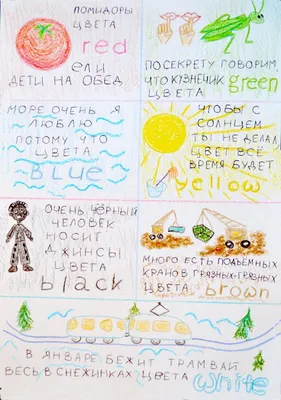 ПОМИДОРЫ
ЦВЕТА
red
ЕЛИ
ДЕТИ НА ОБЕД.
ПОСЕКРЕТУ ГОВОРИМ,
ЧТО КУЗНЕЧИК
ЦВЕТА green
МОРЕ ОЧЕНЬ Я
ЛЮБЛЮ
ПОТОМУ ЧТО
ЦВЕТА
BLUE
ЧТОБЫ С
СОЛНЦЕМ
ТЫ НЕ ДЕЛАЛ
ЦВЕТ ВСЁ
ВРЕМЯ БУДЕТ
yellow
ОЧЕНЬ ЧЁРНЫЙ
ЧЕЛОВЕК
НОСИТ
ДЖИНСЫ
ЦВЕТА
black
МНОГО ЕСТЬ ПОДЪЁМНЫХ
КРАНОВ ГРЯЗНЫХ-ГРЯЗНЫХ
ЦВЕТА brown
В ЯНВАРЕ БЕЖИТ ТРАМВАЙ
ВЕСЬ В СНЕЖИНКАХ ЦВЕТА
white